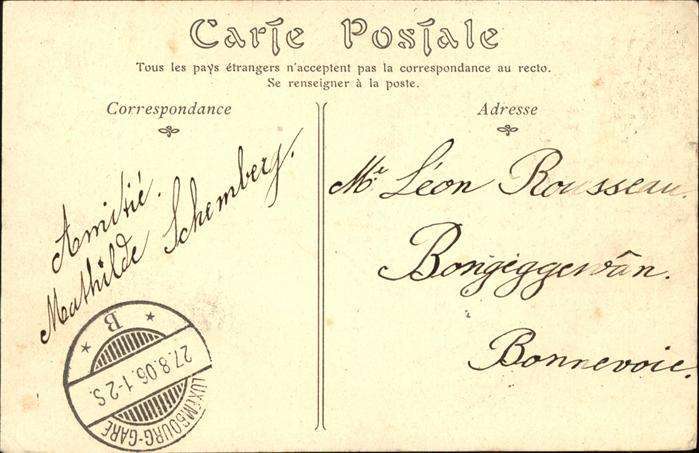 Carte Postale
Tous les pays étrangers n'acceptent pas la correspondance au recto.
Se renseigner à la poste.
Correspondance
Amitié.
Mathilde Schemberg.
B
27.8.06.1-2S.
LUXEMBOURG-GARE
Adresse
Mr Léon Rousseau.
Bongeggewân.
Bonnevoie.